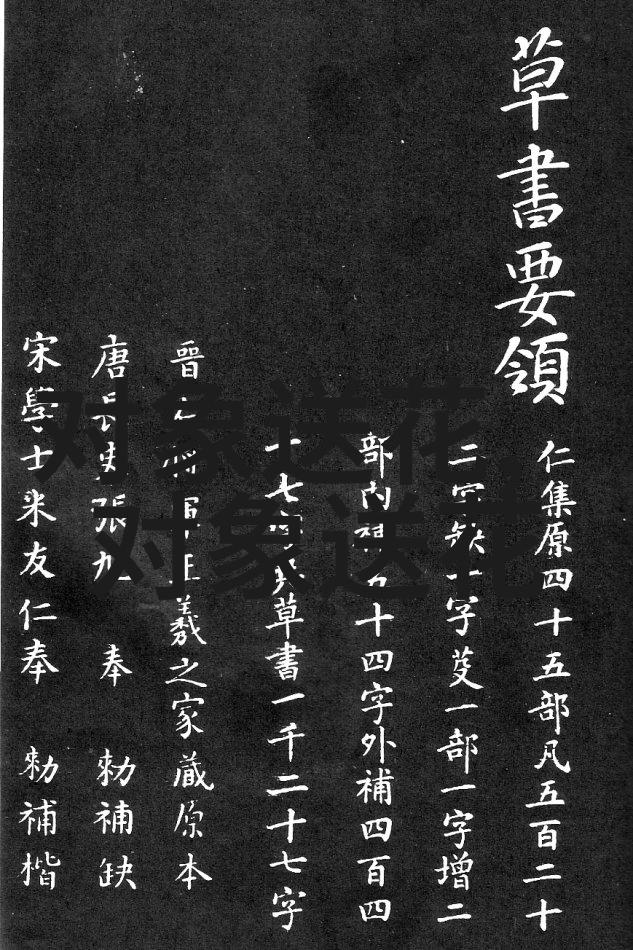 草書要領
仁集原四十五部凡五百二十
二字缺一字芟一部一字增二
部内補十四字外補四百四
十七字共草書一千二十七字
晋右将軍王羲之家藏原本
唐長史張旭 奉 勅補缺
宋學士米友仁奉 勅補楷
对象送花
对象送花